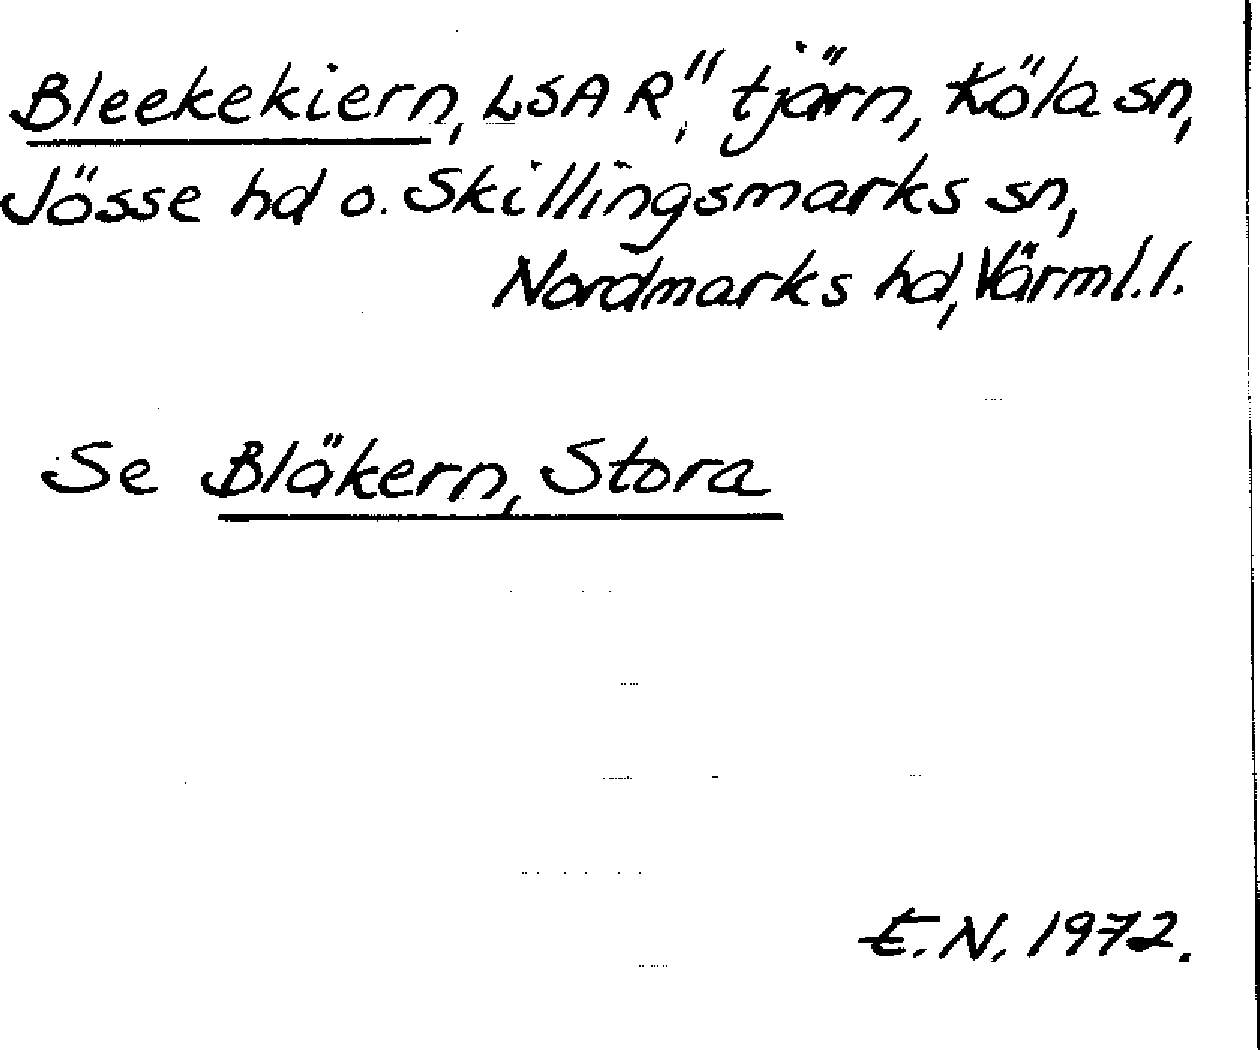 Bleekekiern, LSA R", tjärn, Köla sn,
Jösse hd o. Skillingsmarks sn,
Nordmarks hd, Värml. l.
Se Bläkern, Stora
E. N. 1972.